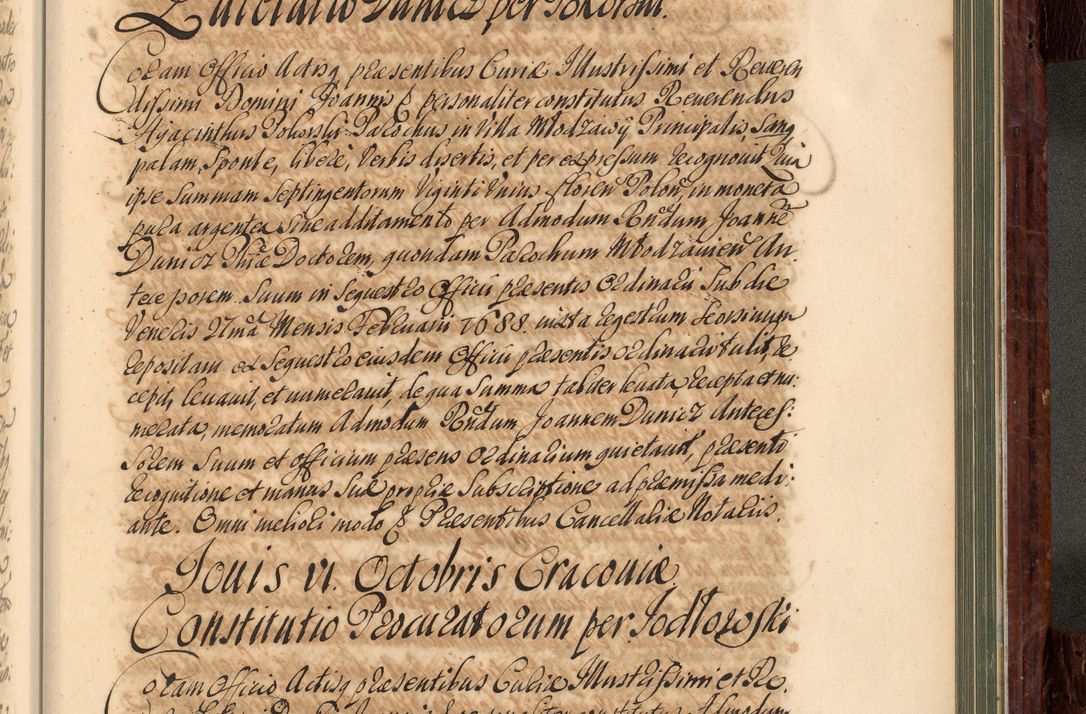 Quietatio Dunicz per Pokorski.
Coram Officio Actisq præsentibus Curiæ Illustrissimi et Reueren
dissimi Domini Joannis & personaliter constitutus Reuerendus
Hyacinthus Pokorski Parochus in Villa Młodzawÿ Principalis, sanq
palam, sponte, liberè, Verbis disertis, et per expressum recognouit, Quia
ipse Summam Septingentorum Viginti Vnius floren Polon, in monetâ
pura argentea sine additamento per Admodum Rndum Joannē
Dunicz Phiæ Doctorem, quondam Parochum Młodzauien An
tecessorem Suum in Sequestro Officii præsentis Ordinarii Sub die
Veneris 27mâ Mensis Februarii 1688. iuxta regestrum seorsiuum
repositam ex Sequestro eiusdem Officii præsentis Ordinarii tulit, re
cepit, leuauit, et numerauit, de qua Summa taliter leuata, recepta et nu:
merata, memoratum Admodum Rndum Joannem Dunicz Anteces:
sorem Suum et officium præsens Ordinarium quietauit, præsenti
recognitione et manus Suæ propriæ Subscriptione ad præmissa medi:
ante. Omni meliori modo & Præsentibus Cancellariæ Notariis.
Jouis VI. Octobris Cracouiæ.
Constitutio Procuratorum per Jodłowski
Coram Officio Actisq præsentibus Curiæ Illustrissimi et Re.